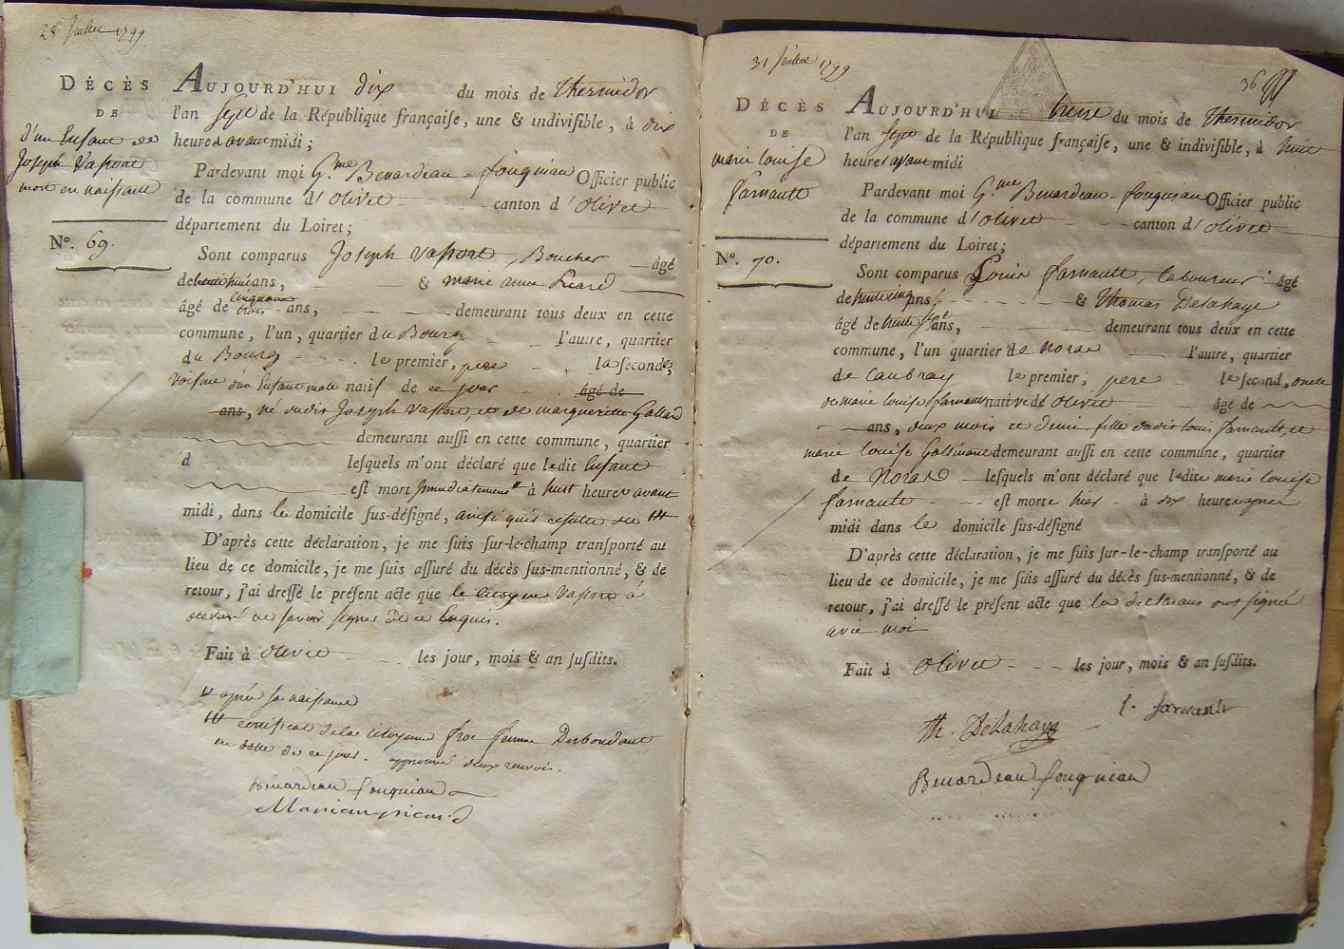 28 Juillet 1799
DÉCÈS
DE
d'un Enfant de
Joseph Vassort
mort en naissant
N°. 69.
AUJOURD'HUI dix du mois de Thermidor
l'an Sept de la République françaiſe, une & indiviſible, à dix
heures avant midi ;
Pardevant moi G.me Benardeau - fouqueau Officier public
de la commune d'olivet canton d'olivet
département du Loiret ;
Sont comparus Joseph Vassort, Boucher âgé
de trente huit ans, & marie anne
âgé de cinquante trois ans, demeurant tous deux en cette
commune, l'un, quartier du Bourg l'autre, quartier
du Bourg le premier, pere la ſeconde,
voisine d'un Enfant male natif de ce jour âgé de
ans, né dudit Joseph Vassort et de marguerite Gallard
demeurant auſſi en cette commune, quartier
d leſquels m'ont déclaré que ledit Enfant
eſt mort immédiatement à huit heures avant
midi, dans le domicile ſus-déſigné, ainsi qu'il résulte du
D'après cette déclaration, je me ſuis ſur-le-champ tranſporté au
lieu de ce domicile, je me ſuis aſſuré du décès ſus-mentionné, & de
retour, j'ai dreſſé le préſent acte que le citoyen Vassort a
déclaré ne savoir signer de ce Enquis.
Fait à olivet les jour, mois & an ſuſdits.
après sa naissance
certificat de la citoyenne femme
en date de ce jour. approuvé deux renvois.
Benardeau fouqueau
31 Juillet 1799
36
DÉCÈS
DE
marie louise
farnault
N°. 70.
AUJOURD'HUI treize du mois de Thermidor
l'an Sept de la République françaiſe, une & indiviſible, à huit
heures avant midi
Pardevant moi G.me Benardeau - fouqueau Officier public
de la commune d'olivet canton d'olivet
département du Loiret ;
Sont comparus Louis farnault, laboureur âgé
de trente cinq ans, & Thomas Delahaye
âgé de trente sept ans, demeurant tous deux en cette
commune, l'un quartier de l'autre, quartier
de Caubray le premier, pere le ſecond, oncle
de marie louise farnault native dé olivet âgé de
ans, deux mois et demi fille dudit louis farnault, et
marie louise demeurant auſſi en cette commune, quartier
de leſquels m'ont déclaré que ladite marie louise
farnault eſt morte hier à dix heures apres
midi dans le domicile ſus-déſigné
D'après cette déclaration, je me ſuis ſur-le-champ tranſporté au
lieu de ce domicile, je me ſuis aſſuré du décès ſus-mentionné, & de
retour, j'ai dreſſé le préſent acte que les déclarans ont signé
avec moi
Fait à olivet les jour, mois & an ſuſdits.
l. farnault
Th. Delahaye
Benardeau fouqueau